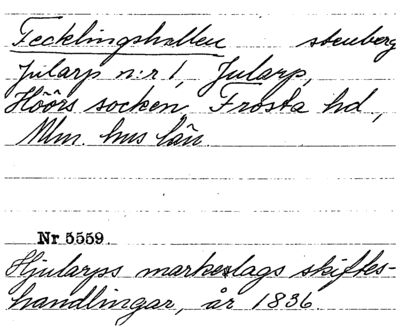 Fecklingshallen stenberg
Jularp n:r 1, Jularp,
Höörs socken, Frosta hd,
Mlm. hus län
Nr 5559.
Hjularps markeslags skiftes-
handlingar, år 1836.